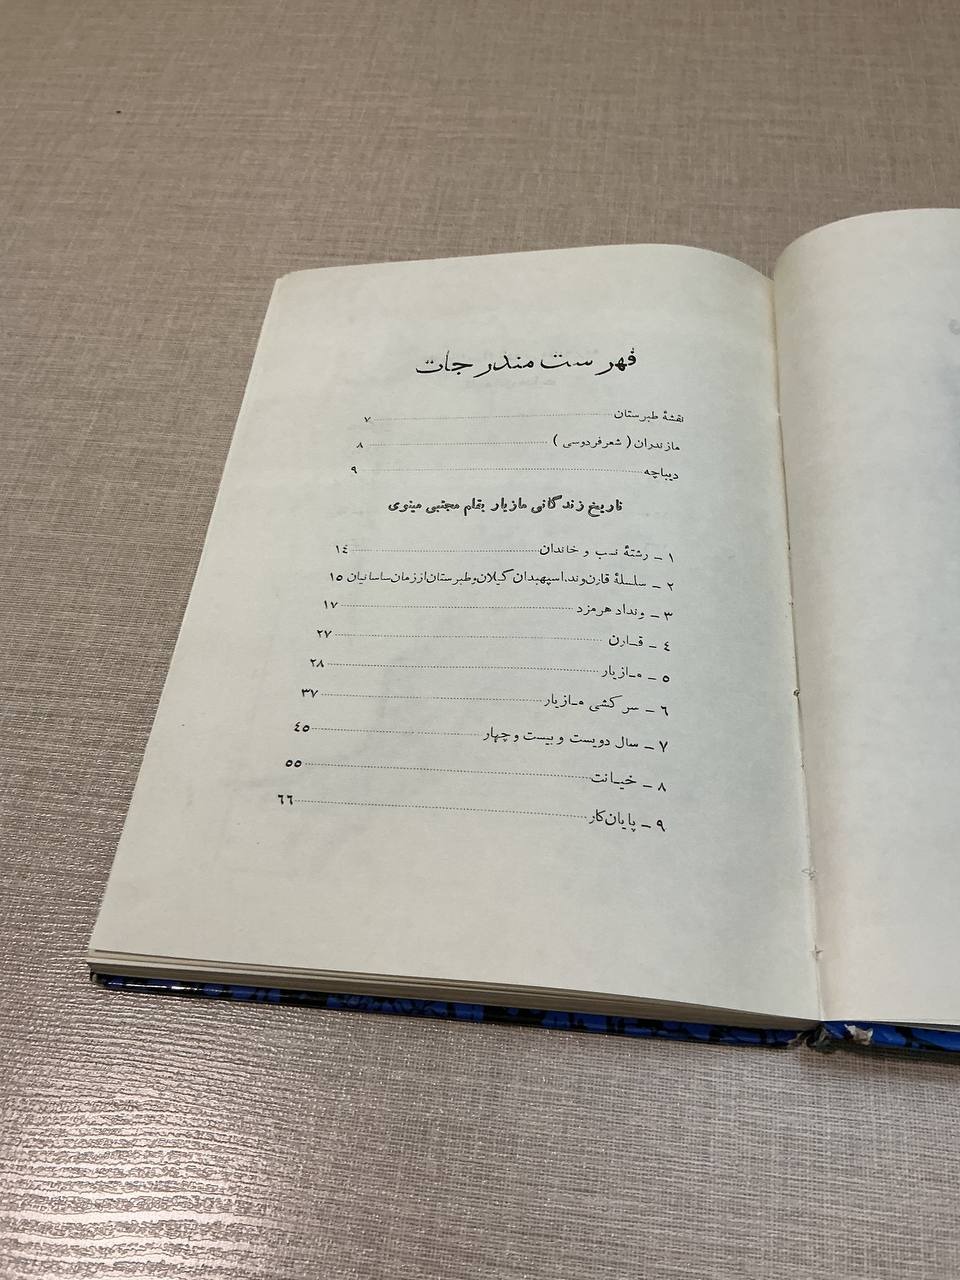 فهرست مندرجات
نقشهٔ طبرستان ۷
مازندران ( شعر فردوسی ) ۸
دیباچه ۹
تاریخ زندگانی مازیار بقلم مجتبی مینوی
۱ ـ رشتهٔ نسب و خاندان ۱٤
۲ ـ سلسلهٔ قارن‌وند. اسپهبدان گیلان و طبرستان از زمان ساسانیان ۱٥
۳ ـ ونداد هرمزد ۱۷
٤ ـ قـارن ۲۷
٥ ـ مـازیار ۲۸
٦ ـ سرکشی مـازیار ۳۷
۷ ـ سال دویست و بیست و چهار ٤٥
۸ ـ خیـانت ٥٥
۹ ـ پایان‌کار ٦٦